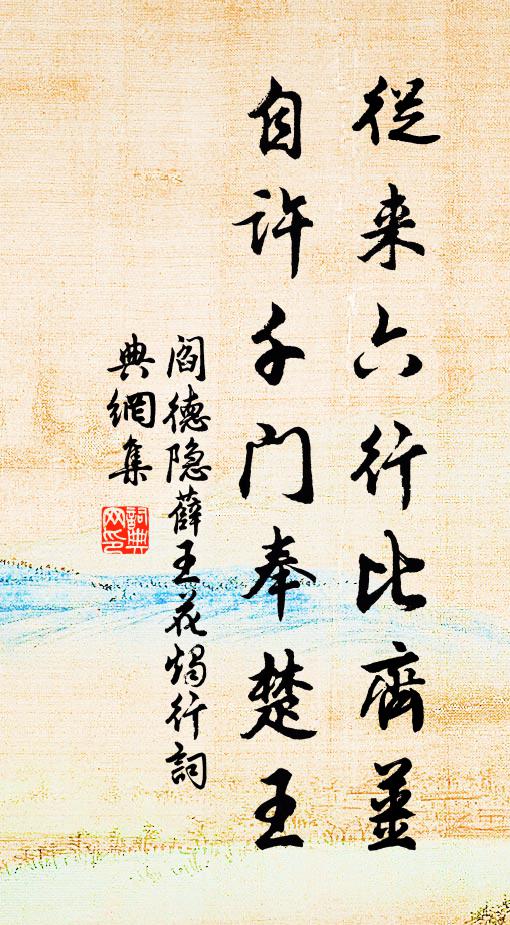 從来六行比齊薑
自许千门奉楚王
阎德隐薛王花燭行詞
典網集
詞典网印